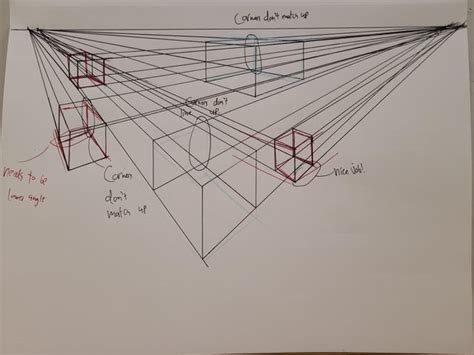 Corners don't match up
Corners don't
line up
needs to be
lower angle
Corners
don't
match up
nice job!